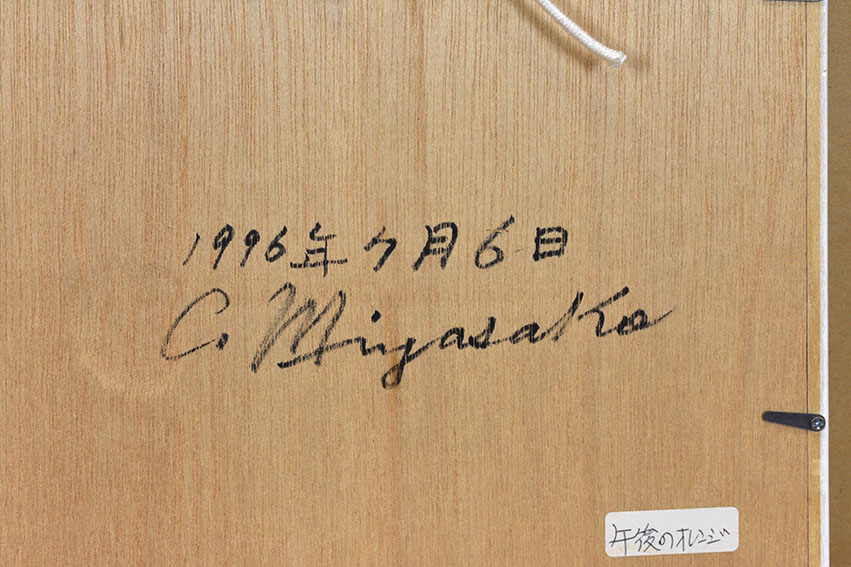 1996年7月6日
C. Miyasaka
午後のオレンジ